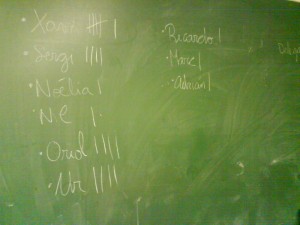 • Xavi |||| |
• Sergi ||||
• Noèlia |
• N.C |
• Oriol ||||
• Uri ||||
• Ricardo |
• Marc |
• Adrián |